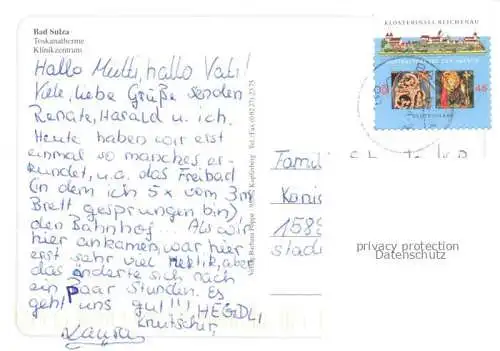 Bad Sulza
Toskanatherme
Klinikzentrum
Hallo Mutti, hallo Vati!
Viele, liebe Grüße senden
Renate, Harald u. ich.
Heute haben wir erst
einmal so manches er-
kundet, u.a. das Freibad
(in dem ich 5x vom 3m
Brett gesprungen bin),
den Bahnhof... Als wir
hier ankamen, war hier
erst sehr viel Hektik, aber
das änderte sich nach
ein Paar Stunden. Es
geht uns gut!!! HEGDL!
Knutscher,
Laura
KLOSTERINSEL REICHENAU
45
DEUTSCHLAND
Famili
1589
stad
privacy protection
Datenschutz